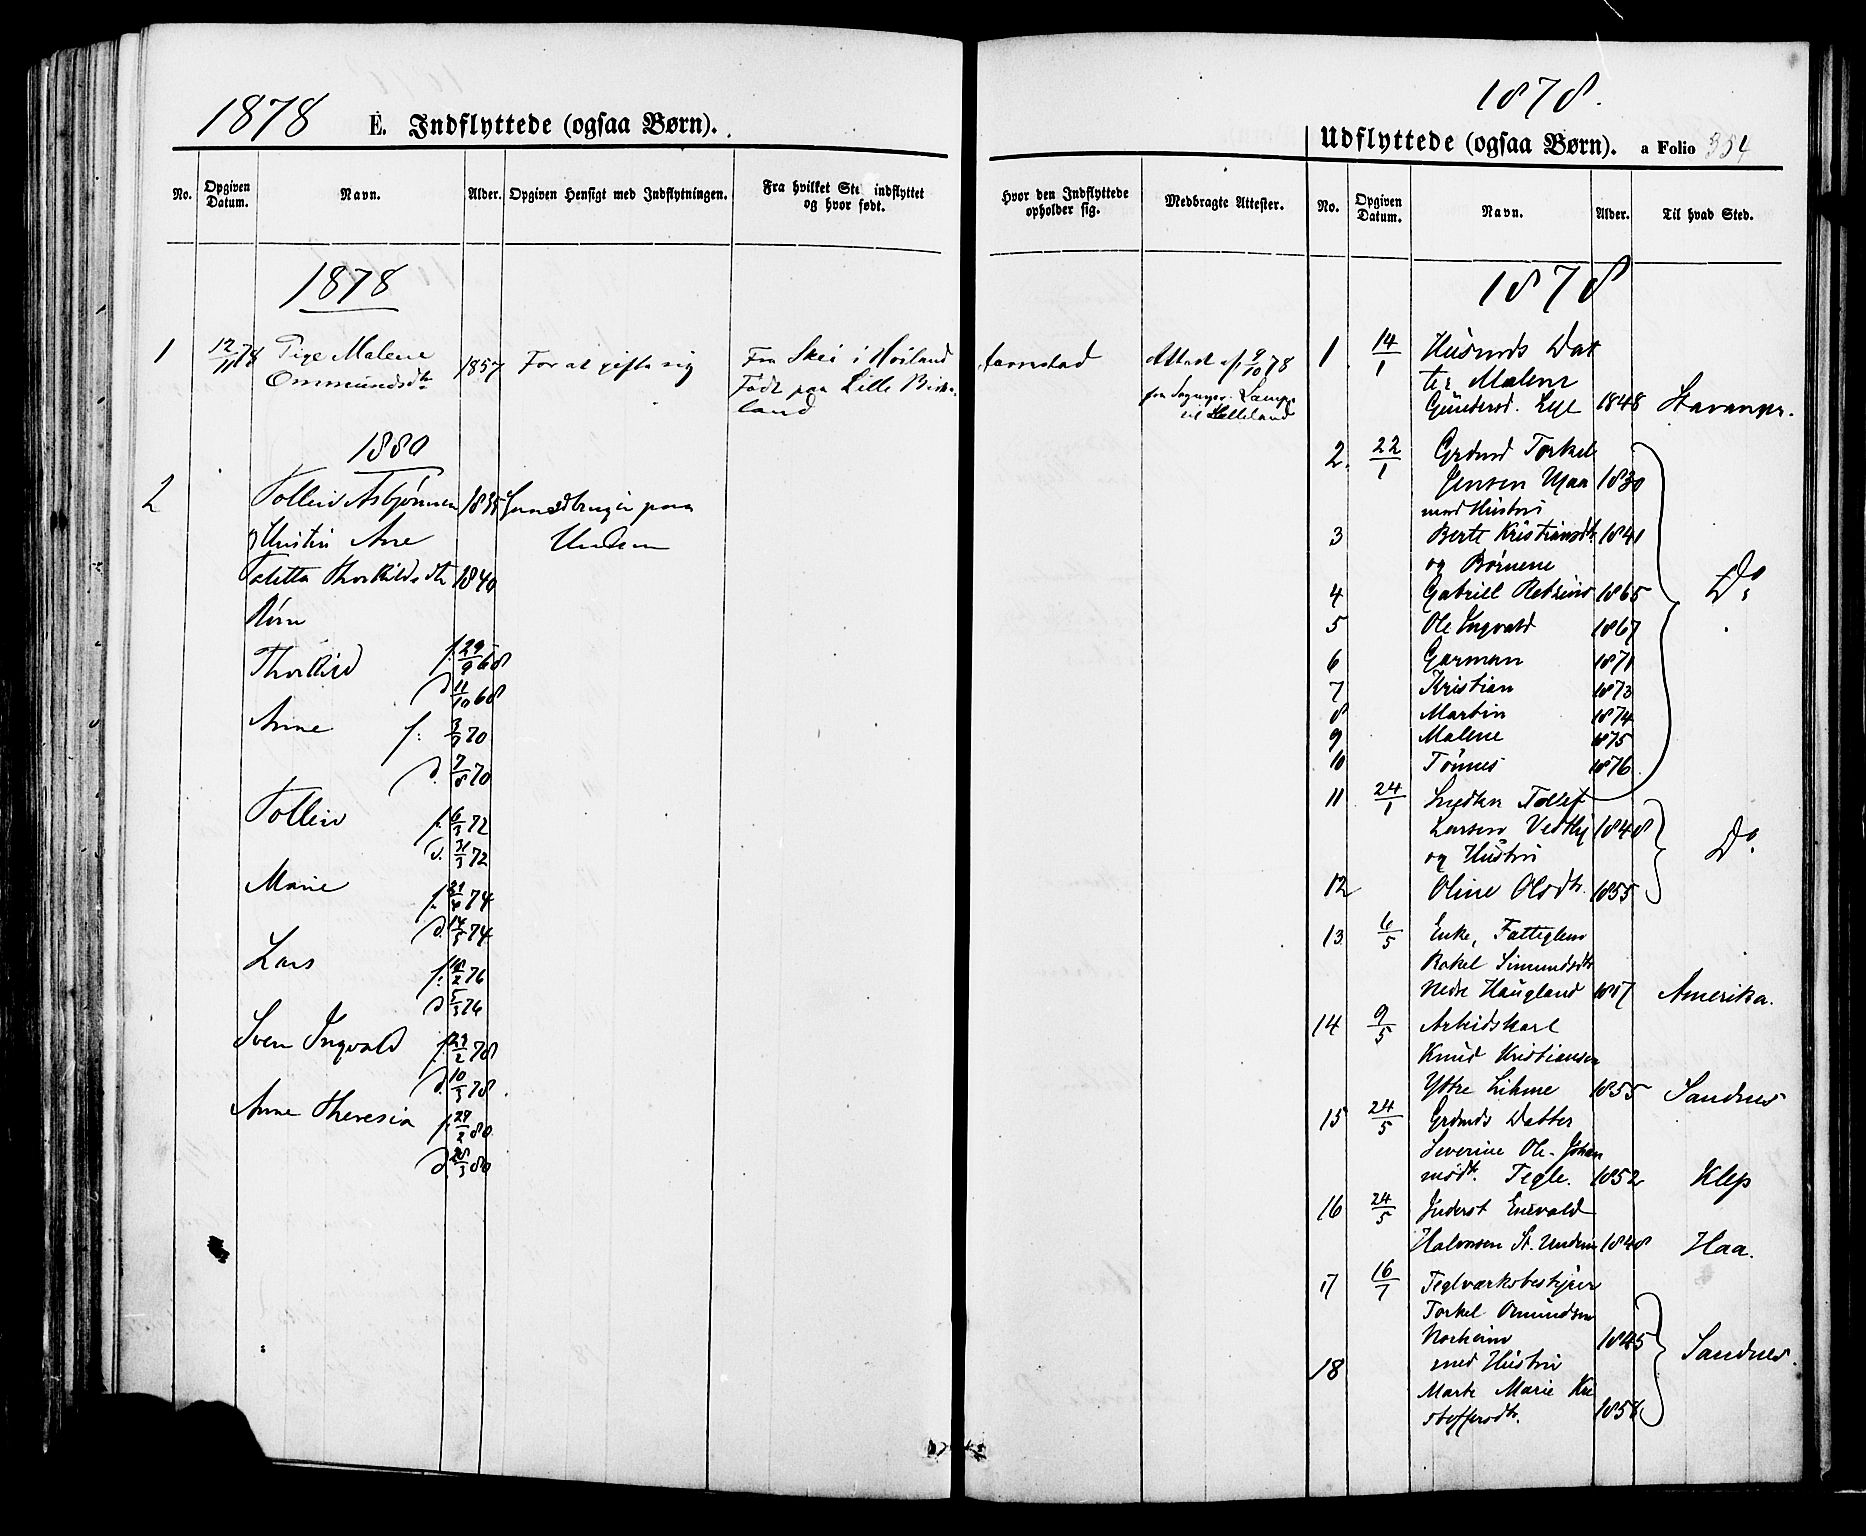 1878 E. Indflyttede (ogsaa Børn).
No. Opgiven Datum. Navn. Alder. Opgiven Hensigt med Indflytningen. Fra hvilket Ste indflyttet og hvor født.
1878
1 12/11 78 Pige Malene 1857 For at gifte sig Fra Skei i Høiland
Ommundsdtr Født paa Lille Birke-
land
1880
2 Tolleiv Asbjørnsen 1835 Gaardbruger paa
og Hustru Ane Undem
Taletta Thorkildsdtr 1840
Børn
Thorkild f. 29/9 68
d 11/10 68
Anne f: 3/7 70
d. 7/8 70
Tolleiv f. 6/3 72
d. 31/3 72
Marie f. 29/4 74
d. 14/5 74
Lars f. 10/2 76
d 5/3 76
Sven Ingvald f. 21/2 78
d. 10/3 78
Anne Theresia f. 27/2 80
d. 28/3 80
1878.
Udflyttede (ogsaa Børn). a Folio 354
Hvor den Indflyttede opholder sig. Medbragte Attester. No. Opgiven Datum. Navn. Alder. Til hvad Sted.
1878
Attest af 9/10 78
fra Sognepr. Lampe
til Helleland
1. 14/1 Husmds Dat
ter Malene
Gundersd. Lye 1848 Stavanger.
2. 22/1 Grdmd Torkel
Jensen Maa 1830
med Hustru
3 Berte Kristiansdtr. 1841
og Børnene
4 Gabriel Retsius 1865 Do
5 Ole Ingvald 1867
6 Garman 1871
7 Kristian 1873
8 Martin 1874
9 Malene 1875
10 Tønnes 1876
11 24/1 Tollef
Larsen 1848 Do.
og Hustru
12 Oline Olsdtr. 1855
13 6/5 Enke, Fattiglem
Rakel Simundsdtr
Nedre Haugland 1817 Amerika.
14 9/5 Arbeidskarl
Knud Kristiansen
Yttre Lihme 1855 Sandnes
15 24/5 Grdmds Datter
Severine Ole-Johan
nesdtr. Tegle. 1852 Klep
16 24/5 Inderst Enevald
Halvorsen St. Undem 1848 Haa.
17 16/7 Teglværksbestyrer
Torkel Omundsen
Norheim 1845 Sandnes.
18 med Hustru
Marte Marie Kri
stoffersdtr. 1858